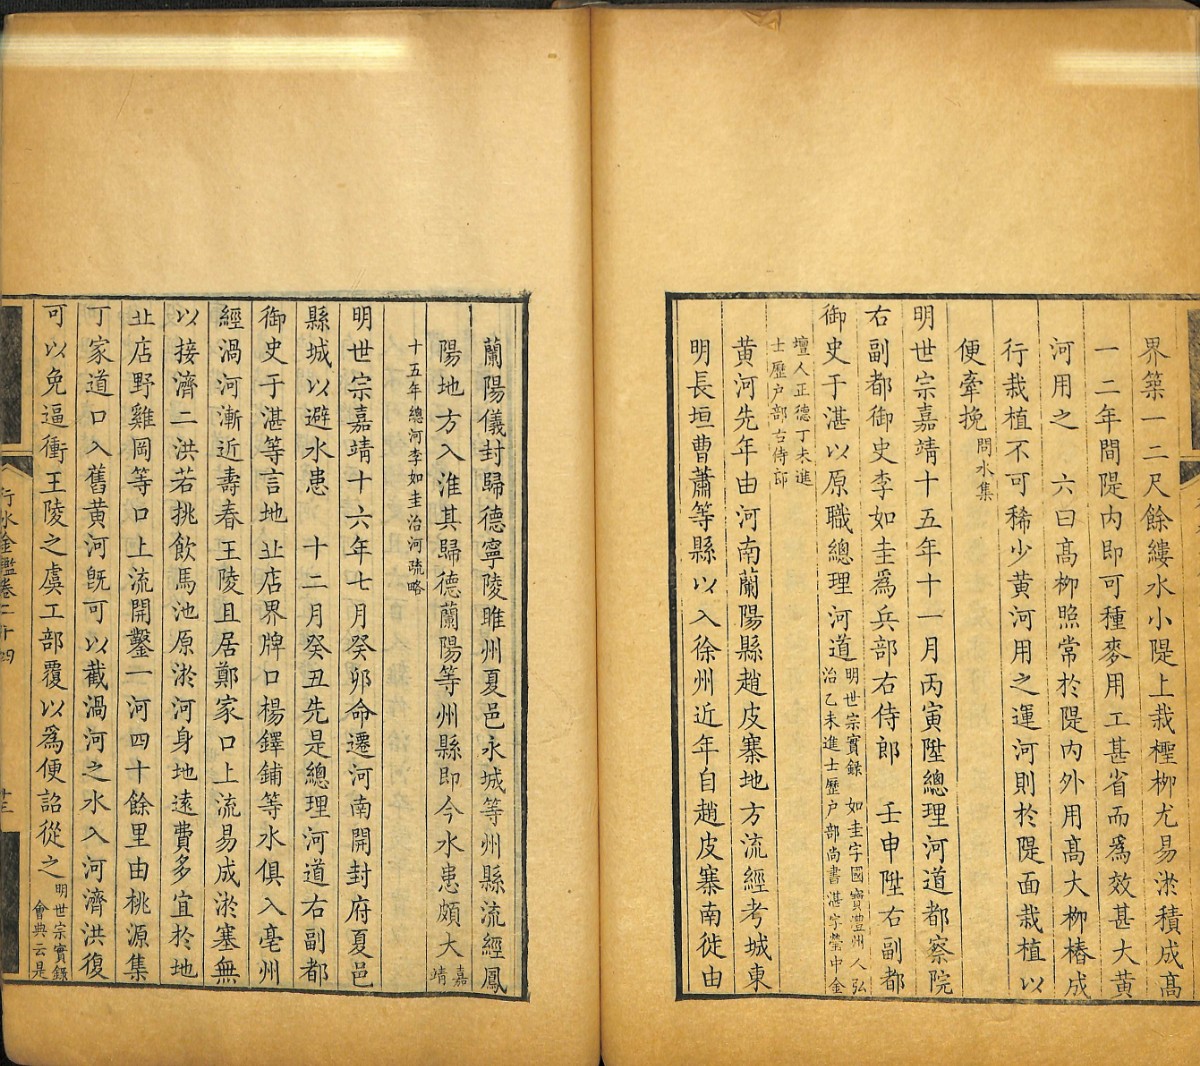 界築一二尺餘縷水小隄上栽檉柳尤易淤積成高
一二年間隄内即可種麥用工甚省而爲效甚大黄
河用之　六曰高柳照常於隄内外用高大柳樁成
行栽植不可稀少黄河用之運河則於隄面栽植以
便牽挽問水集
明世宗嘉靖十五年十一月丙寅陞總理河道都察院
右副都御史李如圭爲兵部右侍郎　壬申陞右副都
御史于湛以原職總理河道明世宗實録　如圭字國寶澧州人弘
治乙未進士歷户部尚書湛字瑩中金
壇人正德丁未進
士歷户部右侍郎
黄河先年由河南蘭陽縣趙皮寨地方流經考城東
明長垣曹蕭等縣以入徐州近年自趙皮寨南徙由
蘭陽儀封歸德寧陵睢州夏邑永城等州縣流經鳳
陽地方入淮其歸德蘭陽等州縣即今水患頗大嘉靖
十五年總河李如圭治河疏略
明世宗嘉靖十六年七月癸卯命遷河南開封府夏邑
縣城以避水患　十二月癸丑先是總理河道右副都
御史于湛等言地丘店界牌口楊鐸鋪等水俱入亳州
經渦河漸近壽春王陵且居鄭家口上流易成淤塞無
以接濟二洪若挑飲馬池原淤河身地遠費多宜於地
丘店野雞岡等口上流開鑿一河四十餘里由桃源集
丁家道口入舊黄河既可以截渦河之水入河濟洪復
可以免逼衝王陵之虞工部覆以爲便詔從之明世宗實録
會典云是
行水金鑑卷二十四